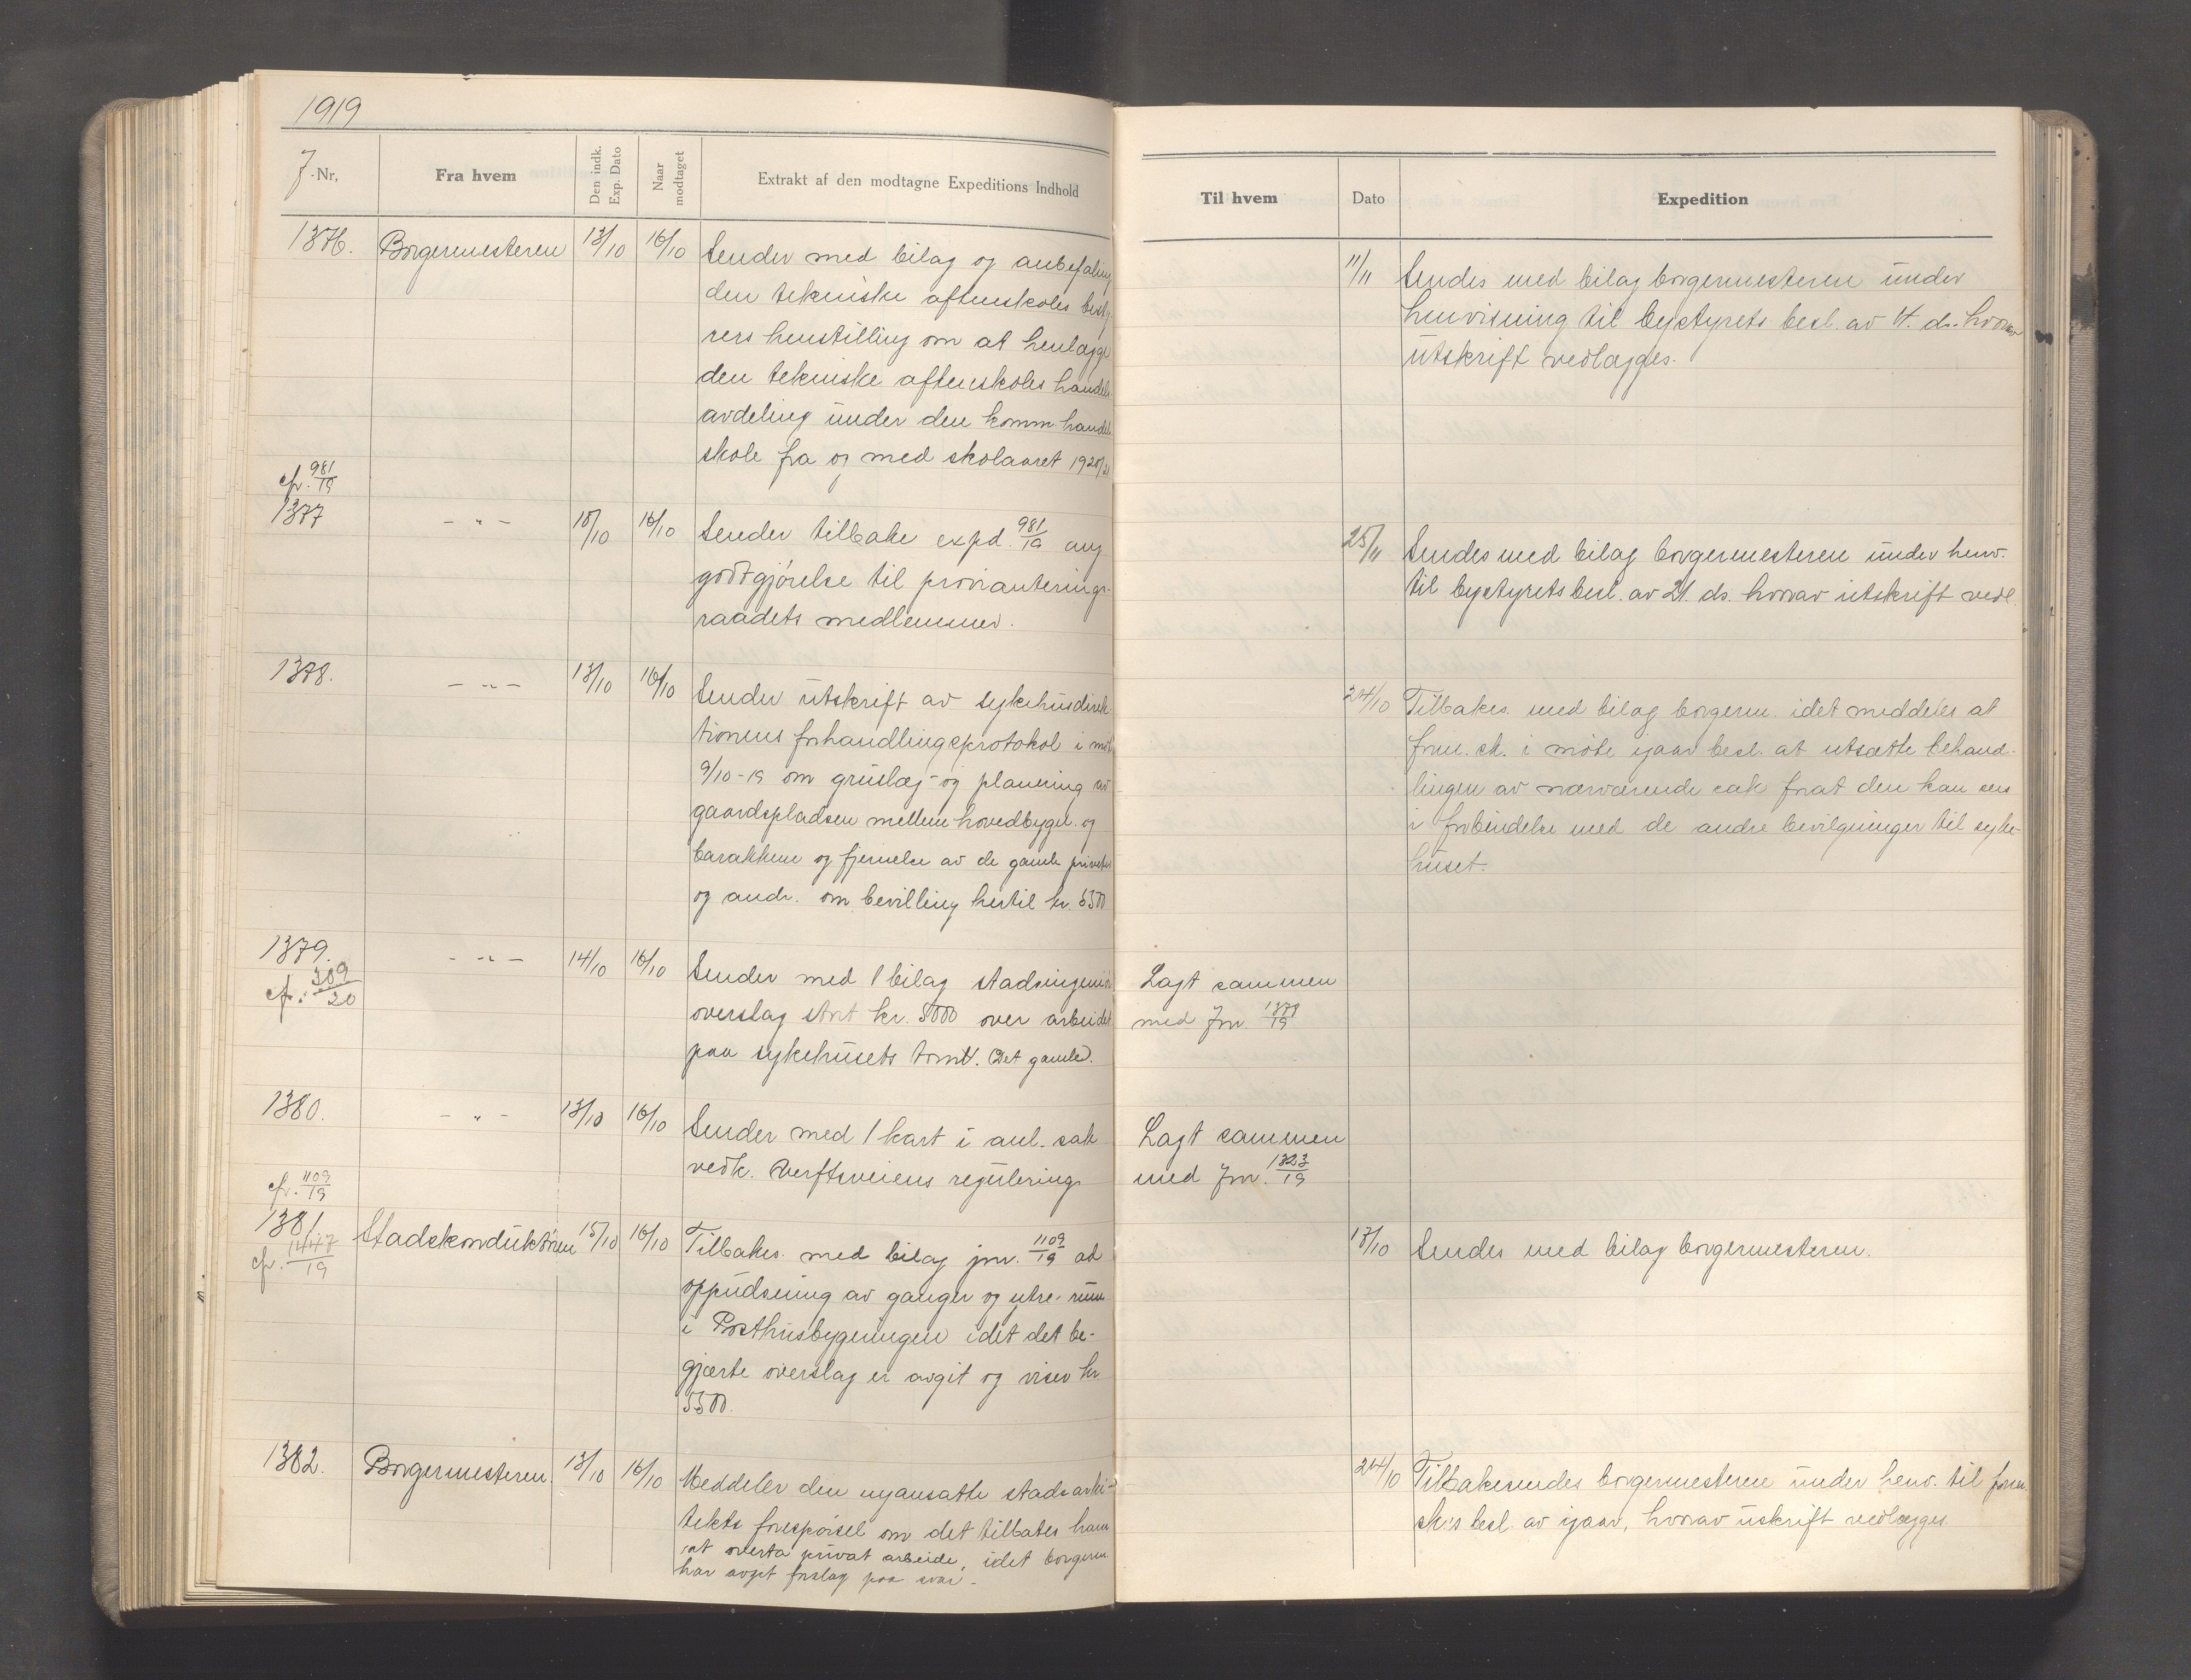 1919
J-Nr,
Fra hvem
Den indk.
Exp. Dato
Naar
modtaget
Extrakt af den modtagne Expeditions Indhold
1376. Borgermesteren 13/10 16/10 Sender med bilag og anbefaling
den tekniske aftenskoles besty-
rers henstilling om at henlægge
den tekniske aftenskoles handels
avdeling under den komm. handels
skole fra og med skolaaret 1920/21
cfr. 981/19
1377 - " - 15/10 16/10 Sender tilbake expd. 981/19 ang
godtgjørelse til provianterings-
raadets medlemmer.
1378. - " - 13/10 16/10 Sender utskrift av sykehusdirek
tionens forhandlingsprotokol i møte
9/10-19 om gruslæg- og planering av
gaardspladsen mellem hovedbygn. og
barakkene og fjernelse av de gamle priveter
og andr. om bevilling hertil kr. 5500
1379. - " - 14/10 16/10 Sender med 1 bilag stadsingeniør
cfr. 309/20
overslag stort kr. 5000 over arbeidet
paa sykehusets tomt. (Det gamle).
1380. - " - 13/10 16/10 Sender med 1 kart i anl. sak
vedk. Verftsveiens regulering.
cfr. 1109/19
1381 Stadskonduktøren 15/10 16/10 Tilbakes. med bilag jnr. 1109/19 ad
cfr. 1447/19
oppudsning av ganger og ytre. rum
i Posthusbygningen idet det be-
gjærte overslag er avgit og viser kr
5500.
1382. Borgermesteren 13/10 16/10 Meddeler den nyansatte stadsarki-
tekts forespørsel om det tillates ham
at overta privat arbeide, idet borgerm
har avgit forslag paa svar-
Til hvem
Dato
Expedition
11/11 Sendes med bilag borgermesteren under
henvisning til bystyrets besl. av 4. ds. hvorav
utskrift vedlægges.
25/11 Sendes med bilag borgermesteren under henv.
til bystyrets besl. av 21. ds. hvorav utskrift vedl.
24/10 Tilbakes. med bilag borgerm. idet meddeles at
form. sk. i møte igaar besl. at utsætte behand-
lingen av nærværende sak forat den kan sees
i forbindelse med de andre bevilgninger til syke-
huset.
Lagt sammen
med Jnr. 1378/19
Lagt sammen
med Jnr. 1323/19
17/10 Sendes med bilag borgermesteren.
24/10 Tilbakesendes borgermesteren under henv. til form.
sk.s besl. av igaar, hvorav uskrift vedlægges